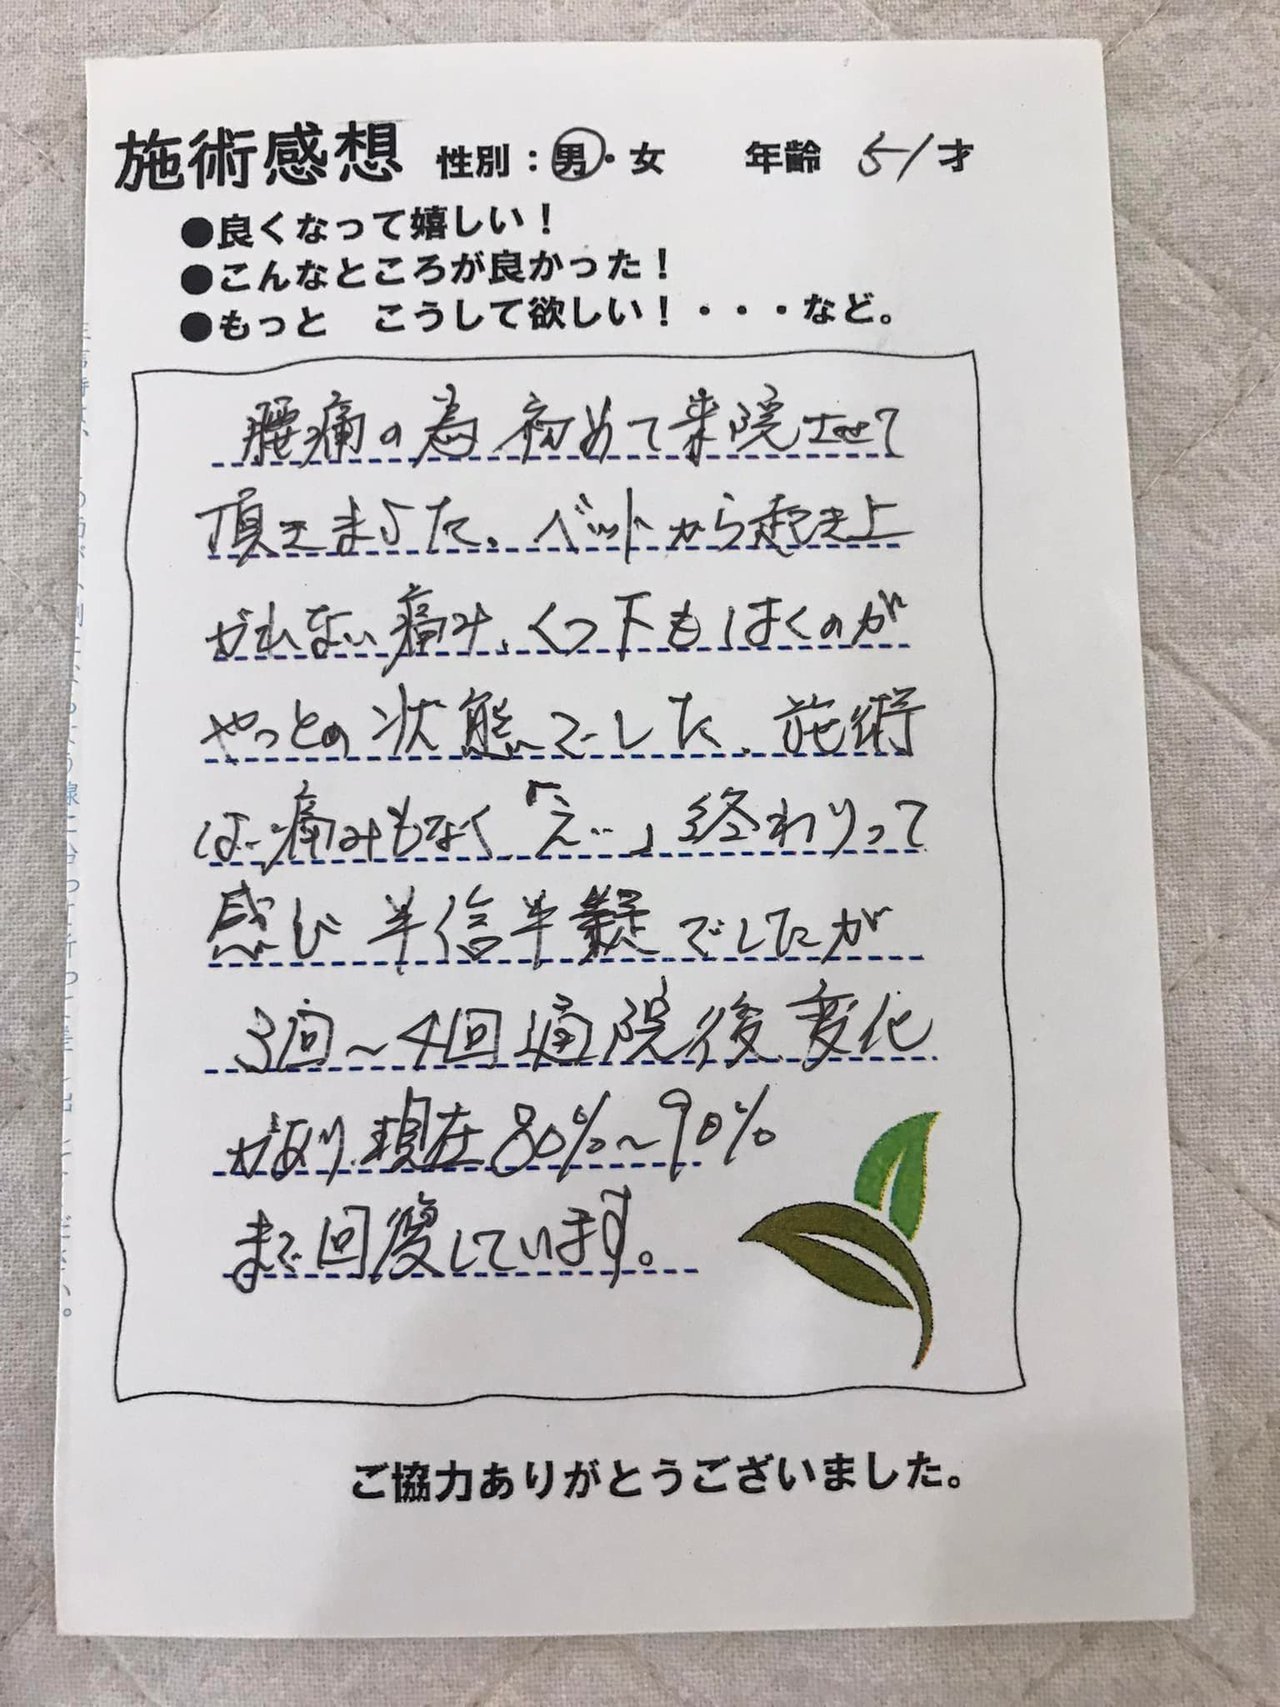 施術感想 性別：男・女 年齢 51才
●良くなって嬉しい！
●こんなところが良かった！
●もっと こうして欲しい！・・・など。
腰痛の為初めて来院させて
頂きました。ベットから起き上
がれない痛み、くつ下もはくのが
やっとの状態でした。施術
は痛みもなく「え…」終わりって
感じ半信半疑でしたが
3回～4回通院後変化
があり、現在80%～90%
まで回復しています。
ご協力ありがとうございました。